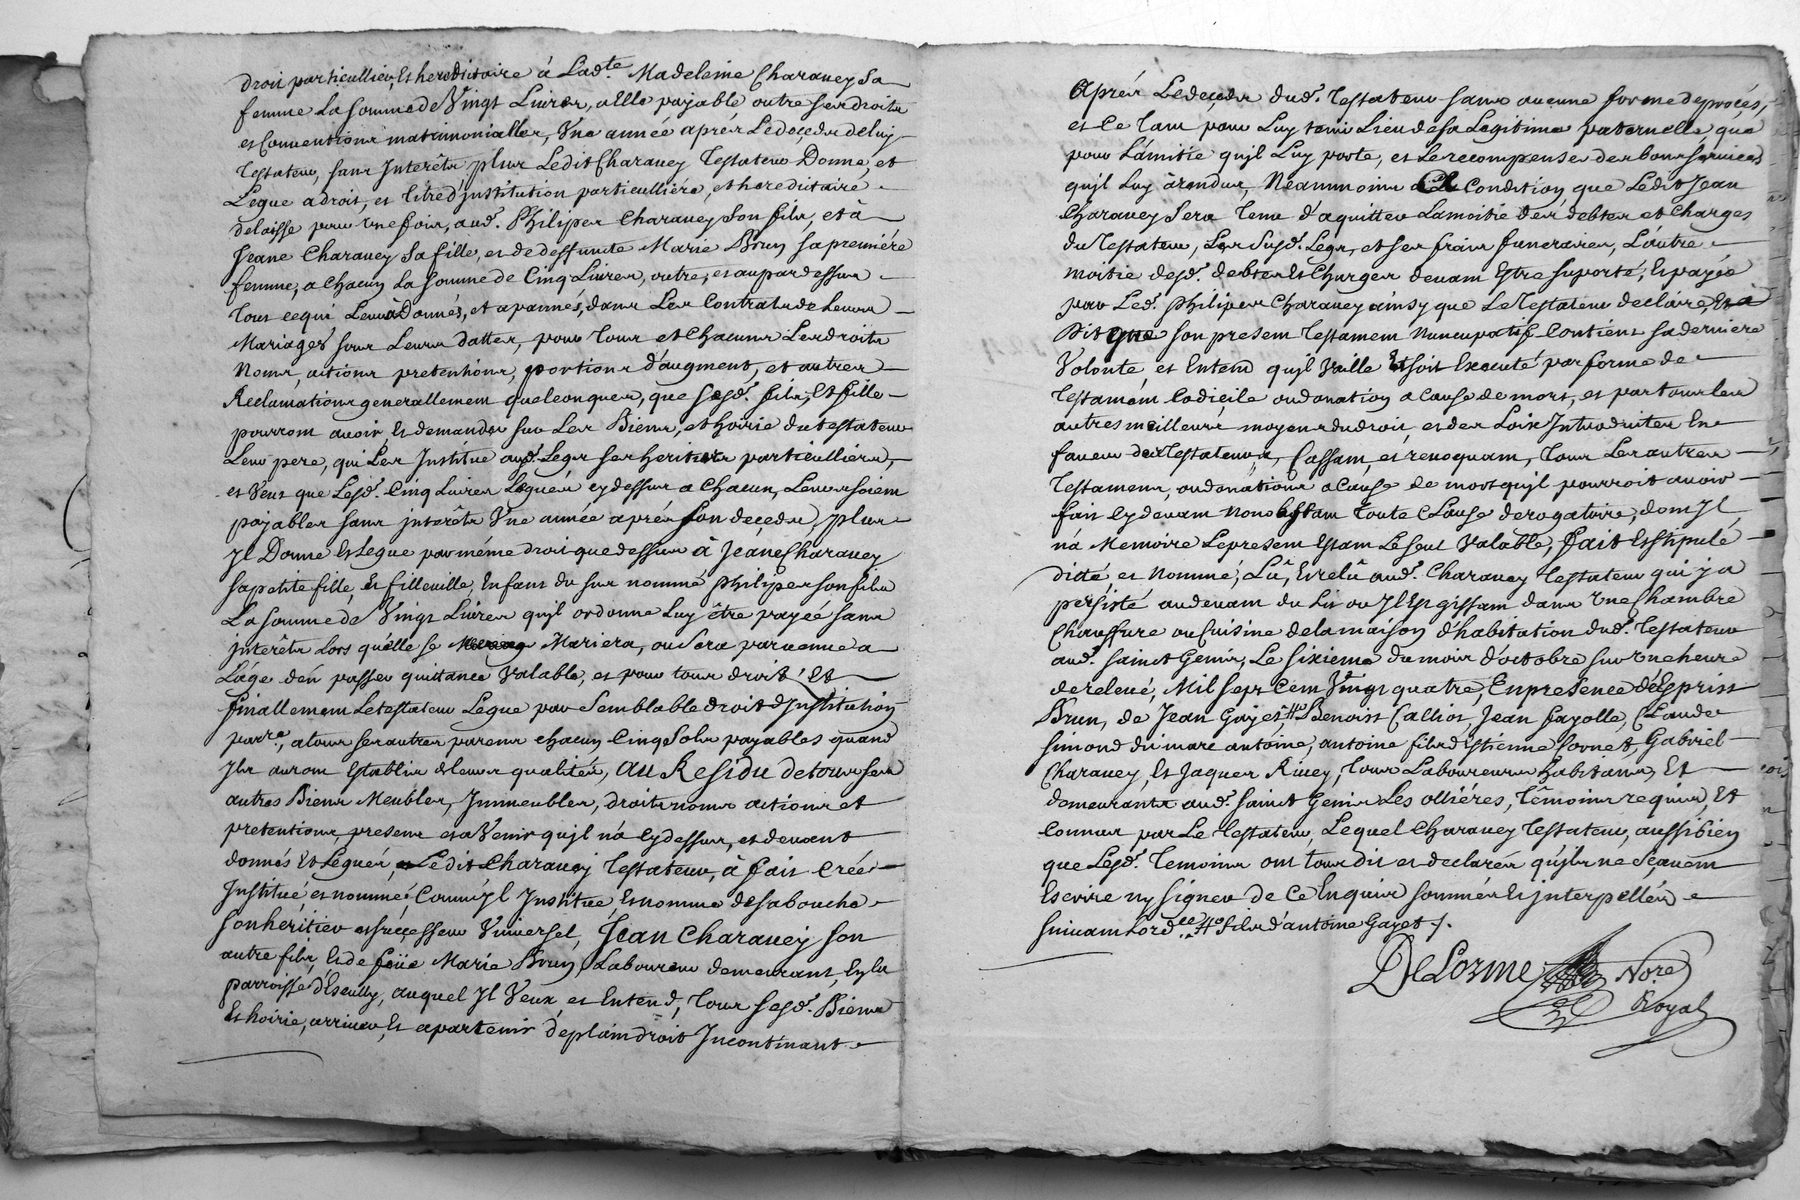 droit particullier, et hereditaire â Lad.te Madeleine Charavey sa
femme La somme de Vingt Livres, a Elle payable outre ses droits
et Conventions matrimonialles, Une année aprés Le deçeds de luy
testateur, sans Interêts, plus Ledit Charavey Testateur Donne, et
Legue a droit, et titre d'institution particulliére, et hereditaire
delaisse pour une fois, aud. Philipes Charavey son fils, et â
Jeane Charavey sa fille, et de deffunte Marie Brun sa premiére
femme, a chacun La somme de Cinq Livres, outre, et aupardessus
tout ce qui Leur â Donnés, et apannés, dans Les Contrats de Leurs
Mariages sous Leurs dattes, pour tous et chacuns Les droits
Noms, actions pretentions, portions d'augment, et autres
Reclamations generallement quelconques, que sesd. fils, Et fille
pourront avoir, Et demander sur Les Biens, et hoirie du testateur
Leur pere, qui Les Institue aud. Legs ses heritiers particulliers,
et Veut que Lesd. Cinq Livres Leguées cy dessus a chacun, Leur soient
payables sans interêts Une année aprés son deçeds, plus
Jl Donne Et Legue par même droit que dessus â Jeane Charavey
sa petite fille, et filleuille, Enfant du sus nommé Philipes son fils
La somme de Vingt Livres qu'jl ordonne Luy être payée sans
interêts Lors qu'elle se Mariera, ou sera parvenue a
L'âge d'en passer quittance Valable, et pour tous droits, Et
finallement Le testateur Legue par semblable droit d'Jnstitution
par.re, a tous ses autres parens chacun Cinq Sols payables quand
Jls auront Establis de Leurs qualitées, au Residu de tous ses
autres Biens Meubles, Jmmeubles, droits noms actions et
pretentions, presens et a Venir qu'jl n'a Cy dessus, et devant
donnés Et Legués, Ledit Charavey Testateur, â fait créé
Jnstitué et nommé, Comme Jl Jnstitue, Et nomme de sa bouche
son heritier et suçcesseur Universel, Jean Charavey son
autre fils, Et de feüe Marie Brun, Laboureur demeurant, En la
parroisse d'Escully, auquel Jl Veut, et Entend, tous sesd. Biens
Et hoirie, arriver, Et apartenir de plain droit Jncontinant
Aprés Le deçeds dud. Testateur sans aucune forme de procés,
et ce tant pour Luy tenir Lieu de sa Legitime paternelle que
pour L'amitie qu'jl Luy porte, et Le recompenser des bons services
qu'jl Luy â rendus, Neanmoins a Condition que Ledit Jean
Charavey sera tenu d'aquitter La moitie des debtes et charges
du Testateur, Les susd. Legs, et ses frais funeraires, L'autre
moitie desd. debtes Et charges devant Estre suporté, Et payée
par Led. Philipes Charavey ainsy que Le Testateur declaire, Et â
Dit que son present testament Nuncupatif Contient sa derniere
Volonté, et Entend qu'jl Vaille Et soit Executé par forme de
Testament Codicile ou donation a Cause de mort, et par tous les
autres meilleurs moyens du droit, et des Loix Introduites En
faveur des Testateurs, Cassant, et revoquant, tous Les autres
Testaments, ou donations a Cause de mort qu'jl pourroit avoir
fait Cy devant Nonobstant toute Clause derogatoire, dont Jl
n'a Memoire Le present Estant Le seul Valable, fait Et stipulé
dicté et nommé, Lû, Et relû aud. Charavey testateur qui y a
persisté au devant du Lit ou Jl Est gissant dans Une Chambre
Chauffure ou Cuisine de la maison d'habitation dud. testateur
aud. Saint Genis, Le sixieme du mois d'octobre sur Une heure
de relevé, Mil sept Cent Vingt quatre, En presence d'Esprist
Brun, de Jean Gayet # Benoist Calliot, Jean Fayolle, Claude
Simond dit marc antoine, antoine fils d'Estienne sornet, Gabriel
Charavey, Et Jaques Rivey, tous Laboureurs habitans, Et
demeurants aud. Saint Genis Les olliéres, têmoins requis, Et
Connus par Le Testateur, Lequel Charavey Testateur, aussi bien
que Lesd. temoins ont tous dit et declarés qu'jls ne sçavent
Escrire ny signer de Ce Enquis sommés Et interpellés
suivant Lord.ce # fils d'antoine Gayet /.
DeLorme No.re
Royal